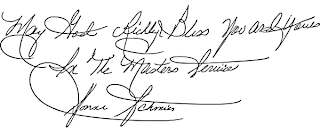 May God Richly Bless You and Yours
In The Masters Service